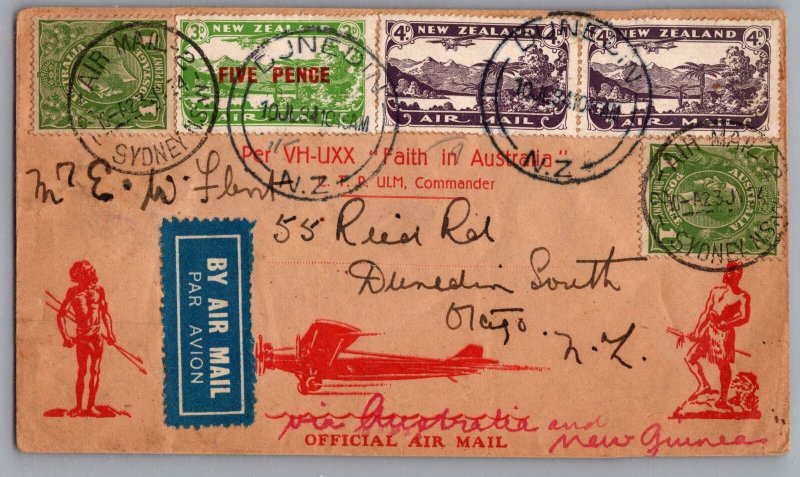 2ND AIR MAIL
SYDNEY N.S.W
AUSTRALIA
POSTAGE
1
3D NEW ZEALAND 3D
FIVE PENCE
AIR MAIL
DUNEDIN
N.Z.
4D NEW ZEALAND 4D
AIR MAIL
DUNEDIN
N.Z.
4D NEW ZEALAND 4D
AIR MAIL
AIR MAIL
SYDNEY N.S.W
AUSTRALIA
POSTAGE
1
Per VH-UXX "Faith in Australia"
C. T. P. ULM, Commander
Mr E. W. Flent
55 Reid Rd
Dunedin South
Otago.
N.Z.
BY AIR MAIL
PAR AVION
via Australia and
New Guinea
OFFICIAL AIR MAIL